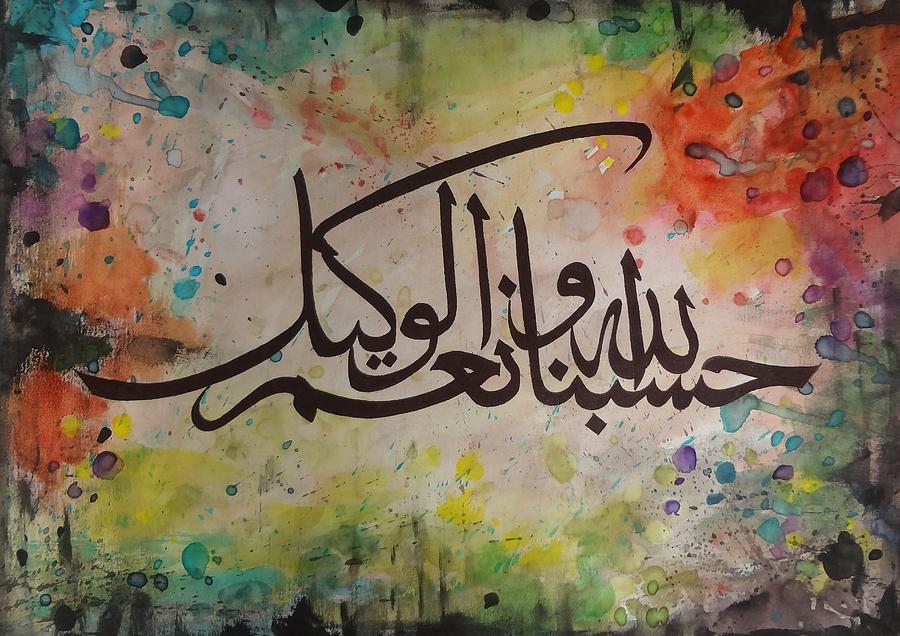 حسبنا الله و نعم الوكيل